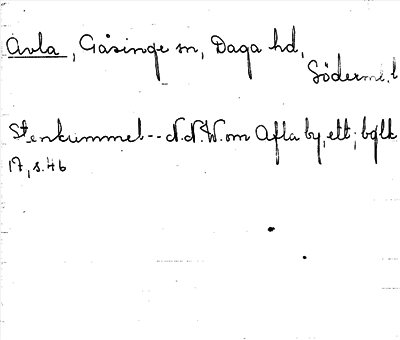 Avla, Gåsinge sn, Daga hd,
Söderml.
Stenkummel -- N.N.W. om Afla by, ett; bqlk
17, s. 46